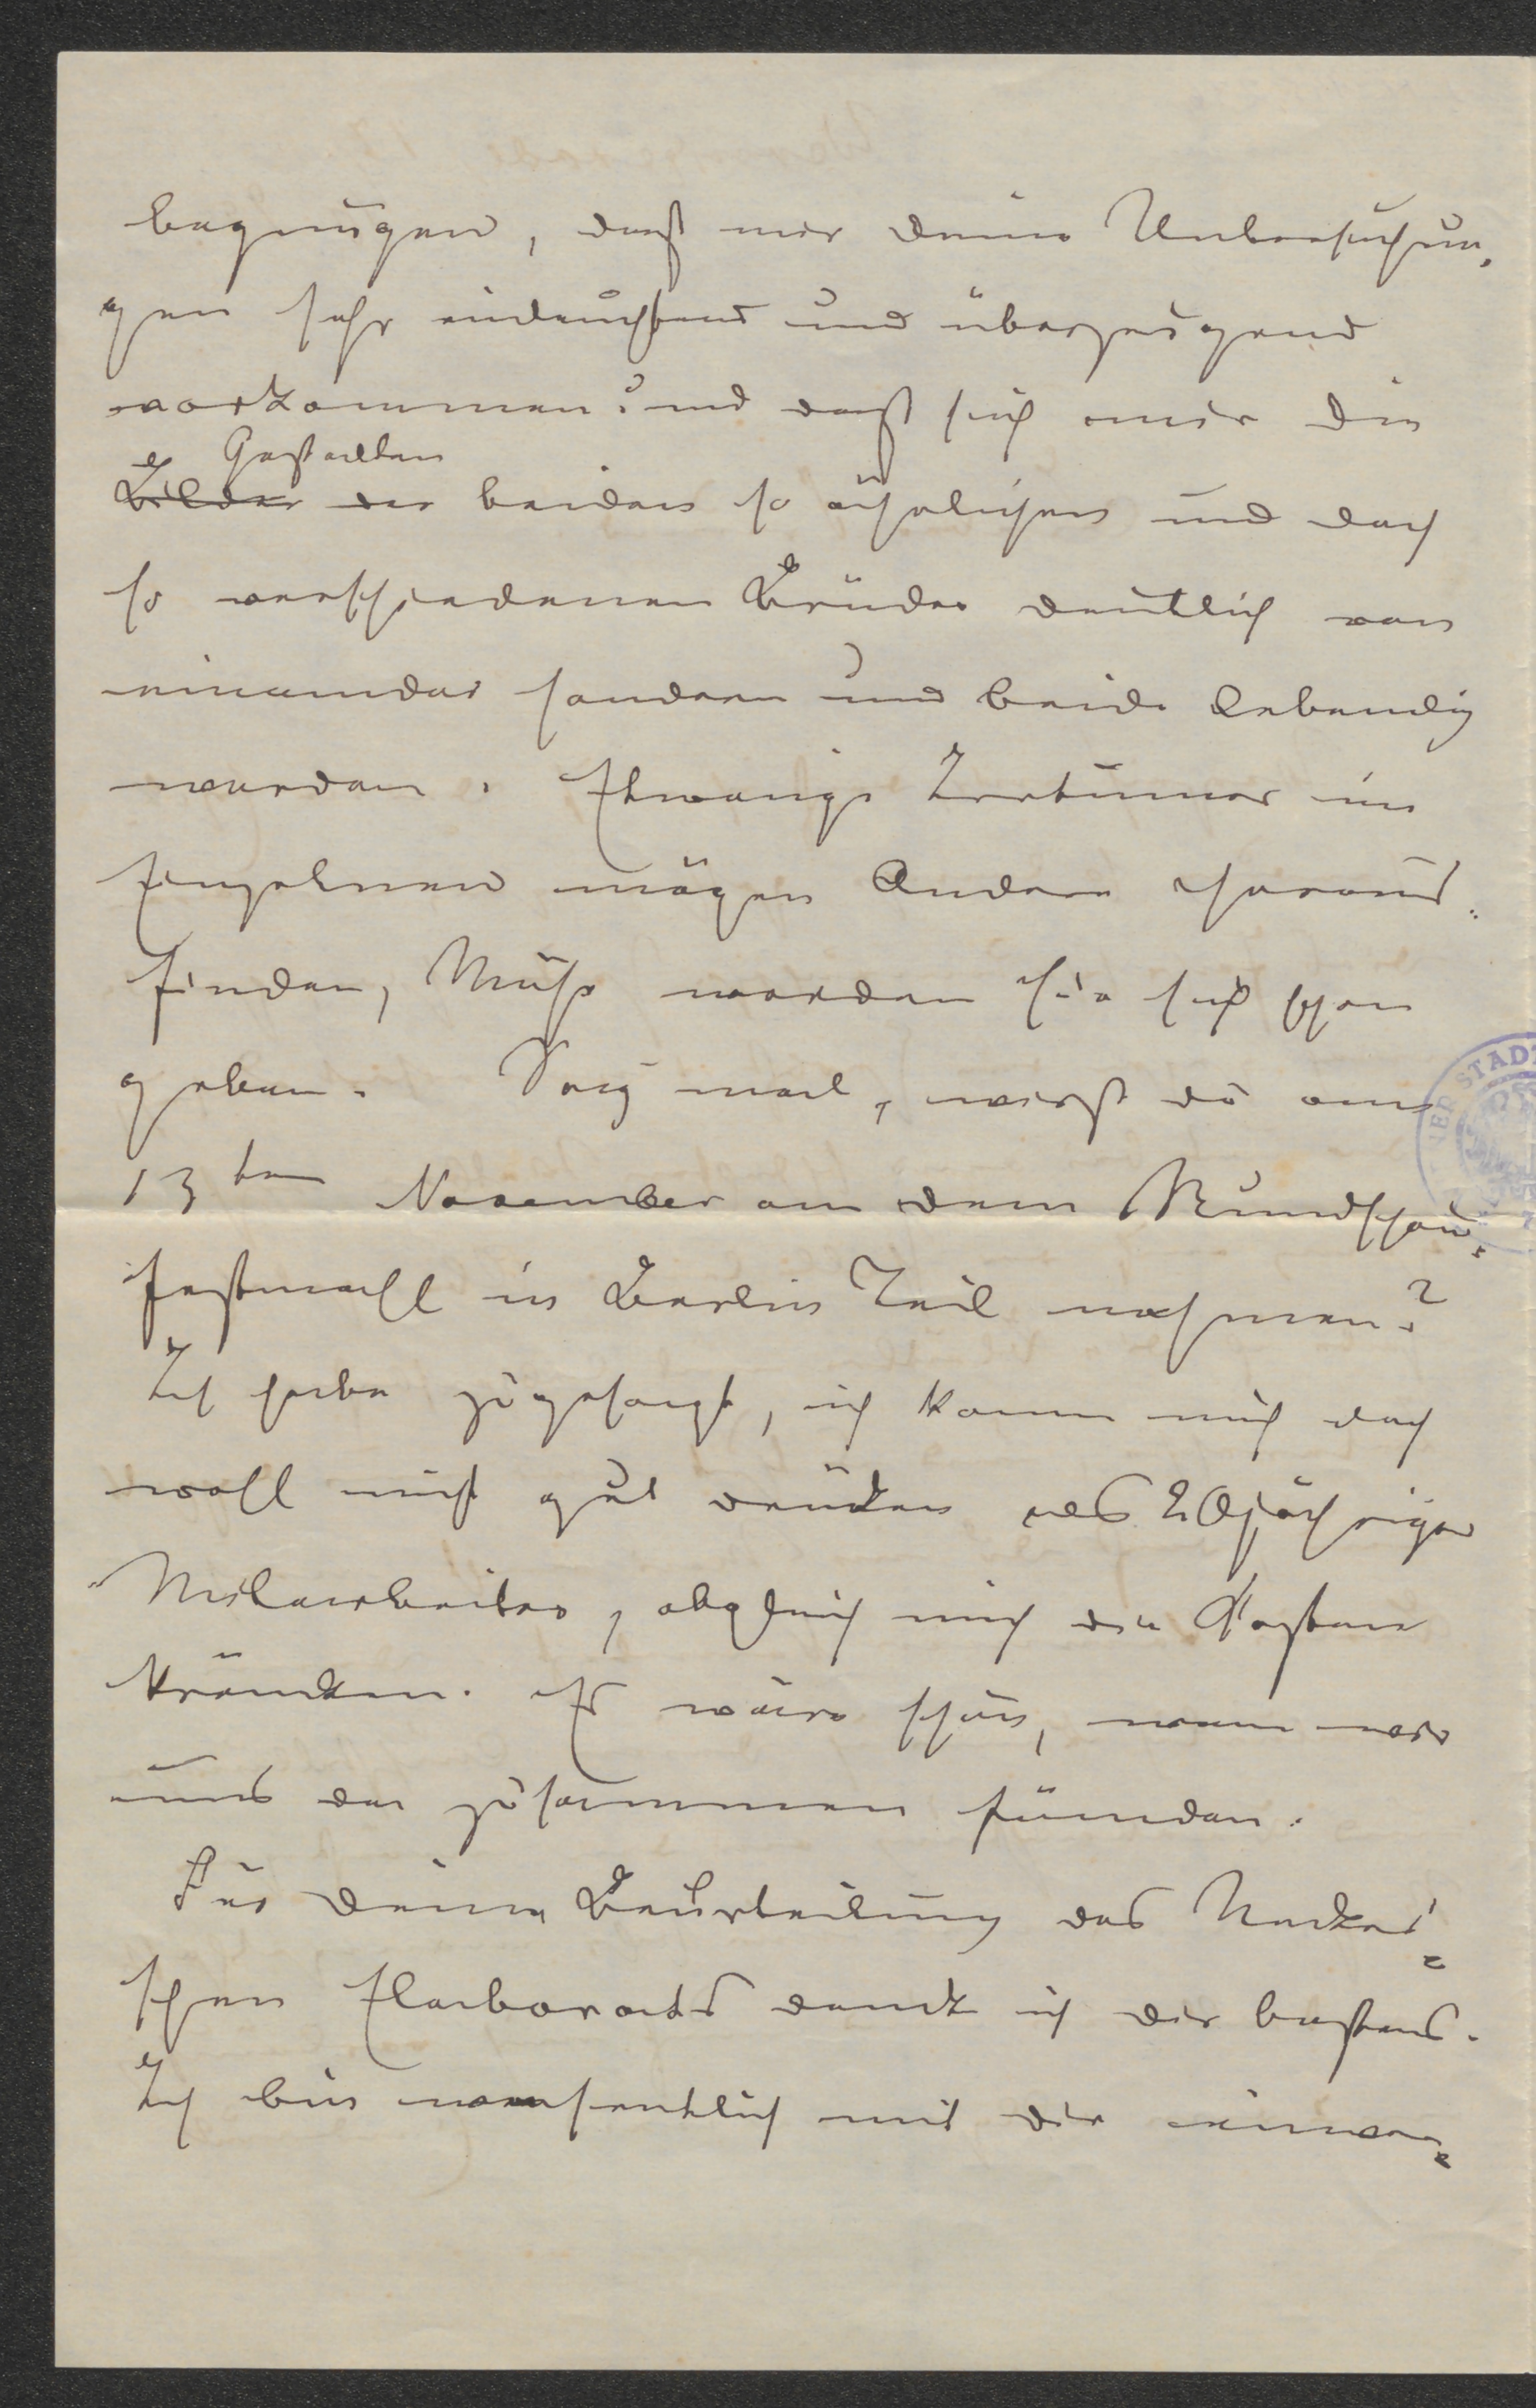 begnügen, daß mir deine Untersuchun-
gen sehr einleuchtend und überzeugend
vorkommen und daß sich mir die
Gestalten
Bilder der beiden so ähnlichen und doch
so verschiedenen Brüder deutlich von
einander sondern und beide lebendig
werden. Etwaige Irrtümer im
Einzelnen mögen Andere heraus-
finden, Mühe werden sie sich schon
geben. Sag mal, wirst du am
13ten November an dem Rundschau-
festmahl in Berlin Teil nehmen?
Ich habe zugesagt, ich kann mich doch
wohl nicht gut drücken als 20jähriger
Mitarbeiter, obgleich mich die Kosten
kränken. Es wäre schön, wenn wir
uns da zusammen fänden.
Für deine Beurteilung des
schen Elaborats dank ich dir bestens.
Ich bin wesentlich mit dir einver-
STADT